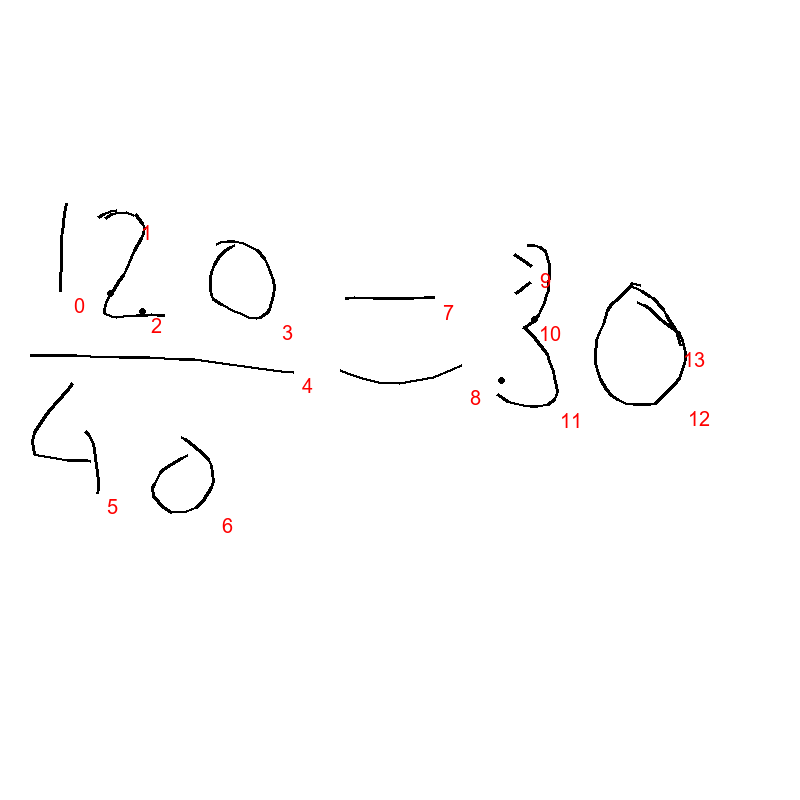 120
40
= 30
0
1
2
3
4
5
6
7
8
9
10
11
12
13